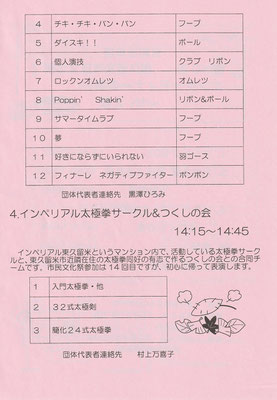 4 チキ・チキ・バン・バン フープ
5 ダイスキ！！ ボール
6 個人演技 クラブ リボン
7 ロックンオムレツ オムレツ
8 Poppin' Shakin' リボン&ボール
9 サマータイムラブ フープ
10 夢 フープ
11 好きにならずにいられない 羽ゴース
12 フィナーレ ネガティブファイター ポンポン
団体代表者連絡先 黒澤ひろみ
4.インペリアル太極拳サークル&つくしの会
14:15～14:45
インペリアル東久留米というマンション内で、活動している太極拳サーク
ルと、東久留米市近隣在住の太極拳同好の有志で作るつくしの会との合同チ
ームです。市民文化祭参加は14回目ですが、初心に帰って表演します。
1 入門太極拳・他
2 32式太極剣
3 簡化24式太極拳
団体代表者連絡先 村上万喜子